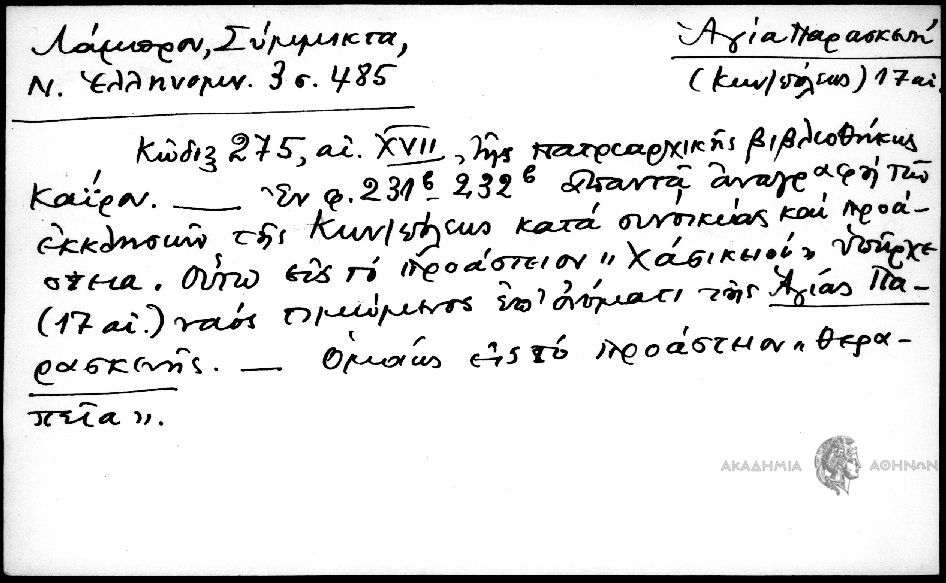 Λάμπρου, Σύμμικτα,
Ν. Ἑλληνομν. 3 σ. 485
Ἁγία Παρασκευή
(Κων/πόλεως) 17 αἰ.
Κῶδιξ 275, αἰ. XVII, τῆς πατριαρχικῆς βιβλιοθήκης
Καΐρου. — Ἐν φ. 231β - 232β ἀπαντᾷ ἀναγραφὴ τῶν
ἐκκλησιῶν τῆς Κων/πόλεως κατά συνοικίας καί προά-
στεια. Οὕτω εἰς τό προάστειον "Χάσικιοϊ" ὑπῆρχε
(17 αἰ.) ναός τιμώμενος ἐπ' ὀνόματι τῆς Ἁγίας Πα-
ρασκευῆς. — Ὁμοίως εἰς τό προάστειον "Θερα-
πεῖα".
ΑΚΑΔΗΜΙΑ ΑΘΗΝΩΝ